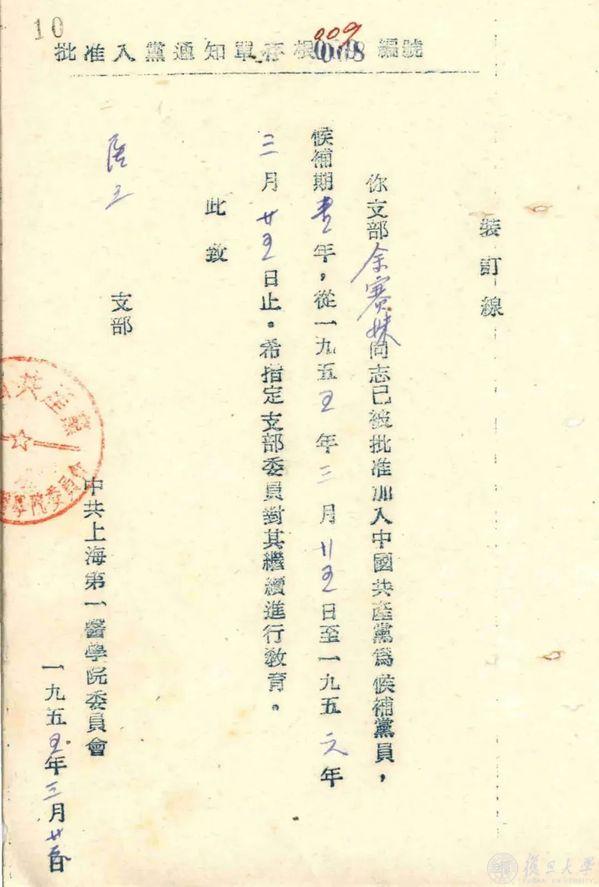 10
批准入黨通知單存根 009 編號
裝訂線
你支部余賽妹同志已被批准加入中國共產黨爲候補黨員，
候補期壹年，從一九五五年三月廿五日至一九五六年
三月廿五日止。希指定支部委員對其繼續進行敎育。
此致
支部
中共上海第一醫學院委員會
一九五五年三月廿五日
共產黨
學院委員會
復旦大學